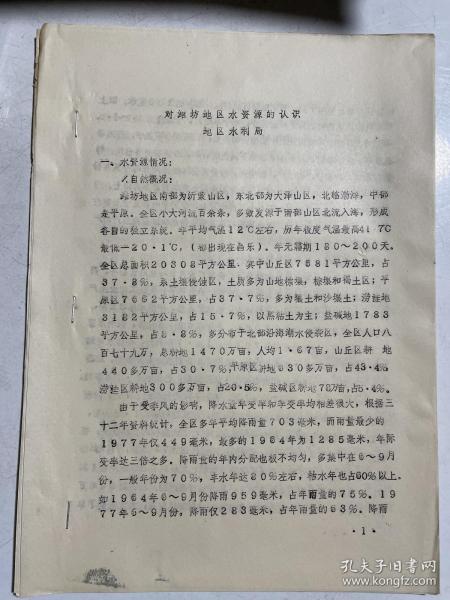 对潍坊地区水资源的认识
地区水利局
一、水资源情况:
自然概况:
潍坊地区南部为沂蒙山区,东北部为大泽山区,北临渤海,中部
是平原。全区小大河流百余条,多数发源于南部山区北流入海,形成
各自的独立系统。年平均气温12℃左右,历年极度气温最高41·7℃
最低—20·1℃,(都出现在昌乐)。年无霜期180~200天。
全区总面积20308平方公里,其中山丘区7681平方公里,占
37·8%,系土壤侵蚀区,土质多为山地棕壤,棕壤和褐土区;平
原区7662平方公里,占37·7%,多为壤土和沙壤土;涝洼地
3182平方公里,占15·7%,以黑粘土为主;盐碱地1783
平方公里,占8·8%,多分布于北部沿海潮水侵袭区,全区人口八
百七十九万,总耕地1470万亩,人均1·67亩,山丘区耕地
440多万亩,占30·7%,平原区耕地630多万亩,占43·4%
涝洼区耕地300多万亩,占20·5%,盐碱区耕地78万亩,占5·4%。
由于受季风的影响,降水量年变率和季变率均相差很大,根据三
十二年资料统计,全区多年平均降雨量703毫米,而雨量最少的
1977年仅449毫米,最多的1964年为1285毫米,年际
变率达三倍之多。降雨量的年内分配也极不均匀,多集中在6~9月
份,一般年份为70%,丰水年达80%左右,枯水年也占60%以上。
如1964年6~9月份降雨959毫米,占年雨量的75%。19
77年6~9月份,降雨仅283毫米,占年雨量的63%。降雨
·1·
孔夫子旧书网
www.kongfz.com